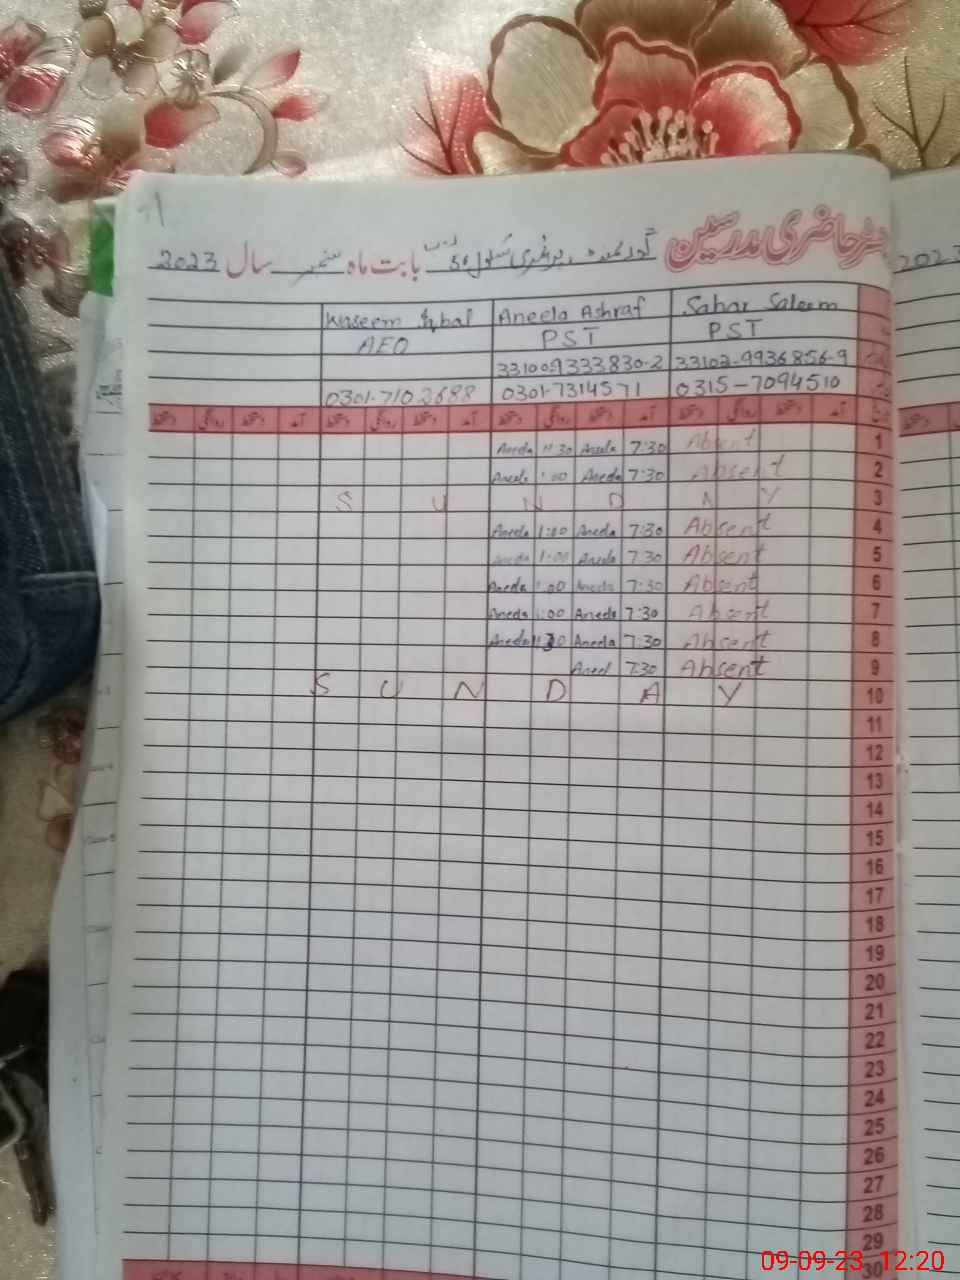 رجسٹر حاضری مدرسین گورنمنٹ پرائمری سکول 56 بابت ماہ ستمبر سال 2023
2023
Sahar Saleem Aneela Ashraf Waseem Iqbal
PST PST AEO
33102-9936856-9 33100-9333830-2
0315-7094510 0301-7314571 0301-7102688
آمد دستخط روانگی دستخط آمد دستخط روانگی دستخط آمد دستخط روانگی دستخط آمد دستخط روانگی دستخط
1 Absent 7:30 Aneela 11:30 Aneela
2 Absent 7:30 Aneela 1:00 Aneela
3 S U N D A Y
4 Absent 7:30 Aneela 1:00 Aneela
5 Absent 7:30 Aneela 1:00 Aneela
6 Absent 7:30 Aneela 1:00 Aneela
7 Absent 7:30 Aneela 1:00 Aneela
8 Absent 7:30 Aneela 11:30 Aneela
9 Absent 7:30 Aneel
10 S U N D A Y
11
12
13
14
15
16
17
18
19
20
21
22
23
24
25
26
27
28
29
30
09-09-23 12:20